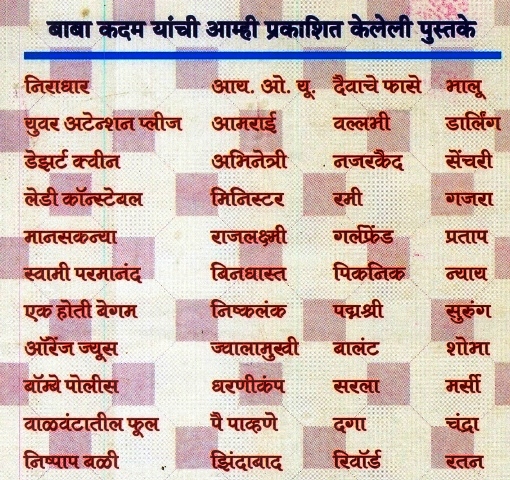 बाबा कदम यांची आम्ही प्रकाशित केलेली पुस्तके
निराधार आय. ओ. यू. दैवाचे फासे भालू
युवर अटेन्शन प्लीज आमराई वल्लभी डार्लिंग
डेझर्ट क्वीन अभिनेत्री नजरकैद सेंचरी
लेडी कॉन्स्टेबल मिनिस्टर रमी गजरा
मानसकन्या राजलक्ष्मी गर्लफ्रेंड प्रताप
स्वामी परमानंद बिनधास्त पिकनिक न्याय
एक होती बेगम निष्कलंक पद्मश्री सुरुंग
ऑरेंज ज्यूस ज्वालामुखी बालंट शोभा
बॉम्बे पोलीस धरणीकंप सरला मर्सी
वाळवंटातील फूल पै पाव्हणे दगा चंद्रा
निष्पाप बळी झिंदाबाद रिवॉर्ड रतन